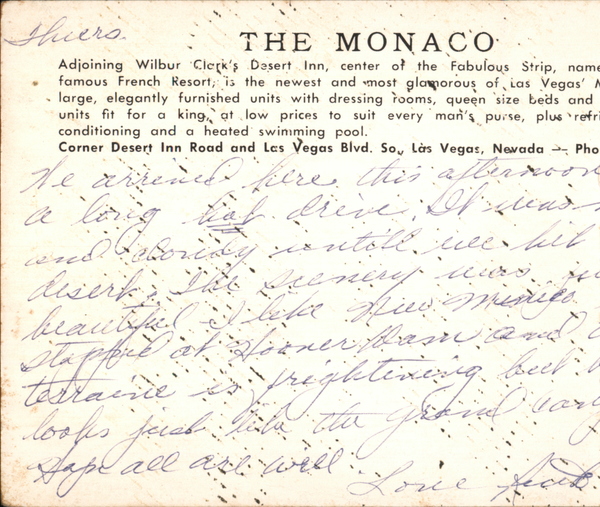 Thurs.
THE MONACO
Adjoining Wilbur Clark's Desert Inn, center of the Fabulous Strip, name
famous French Resort, is the newest and most glamorous of Las Vegas' M
large, elegantly furnished units with dressing rooms, queen size beds and
units fit for a king, at low prices to suit every man's purse, plus refri
conditioning and a heated swimming pool.
Corner Desert Inn Road and Las Vegas Blvd. So., Las Vegas, Nevada — Pho
We arrived here this afternoon
a long hot drive. It was
and cloudy untill we hit
desert. The scenery was
beautiful I like New Mexico
stopped at Hoover Dam and
terraine is frightining but
looks just like the grand cany
Hope all are well
Love